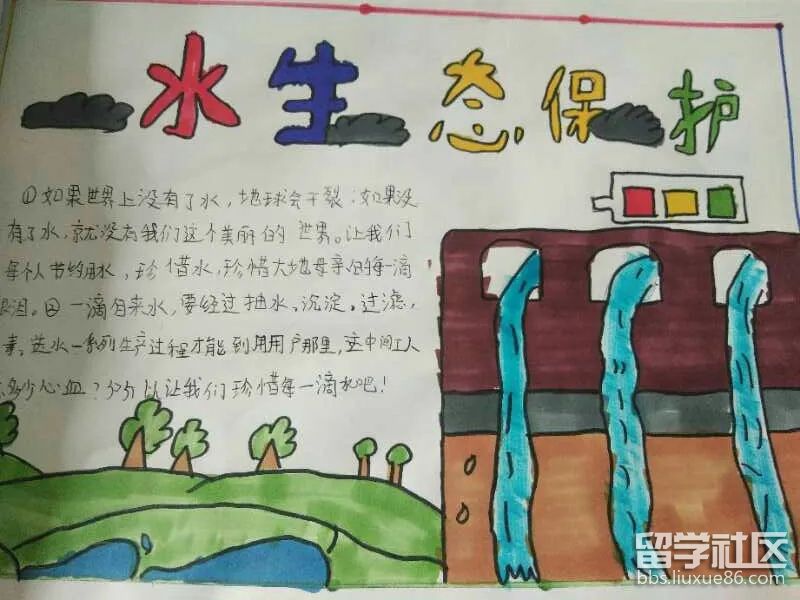 水生态保护
①如果世界上没有了水，地球会干裂；如果没
有了水，就没有我们这个美丽的世界。让我们
每个人节约用水，珍惜水，珍惜大地母亲的每一滴
眼泪。②一滴自来水，要经过抽水、沉淀、过滤，
毒、送水一系列生产过程才能到用用户那里，这中间工人
多少心血？所以让我们珍惜每一滴水吧！
留学社区
bbs.liuxue86.com